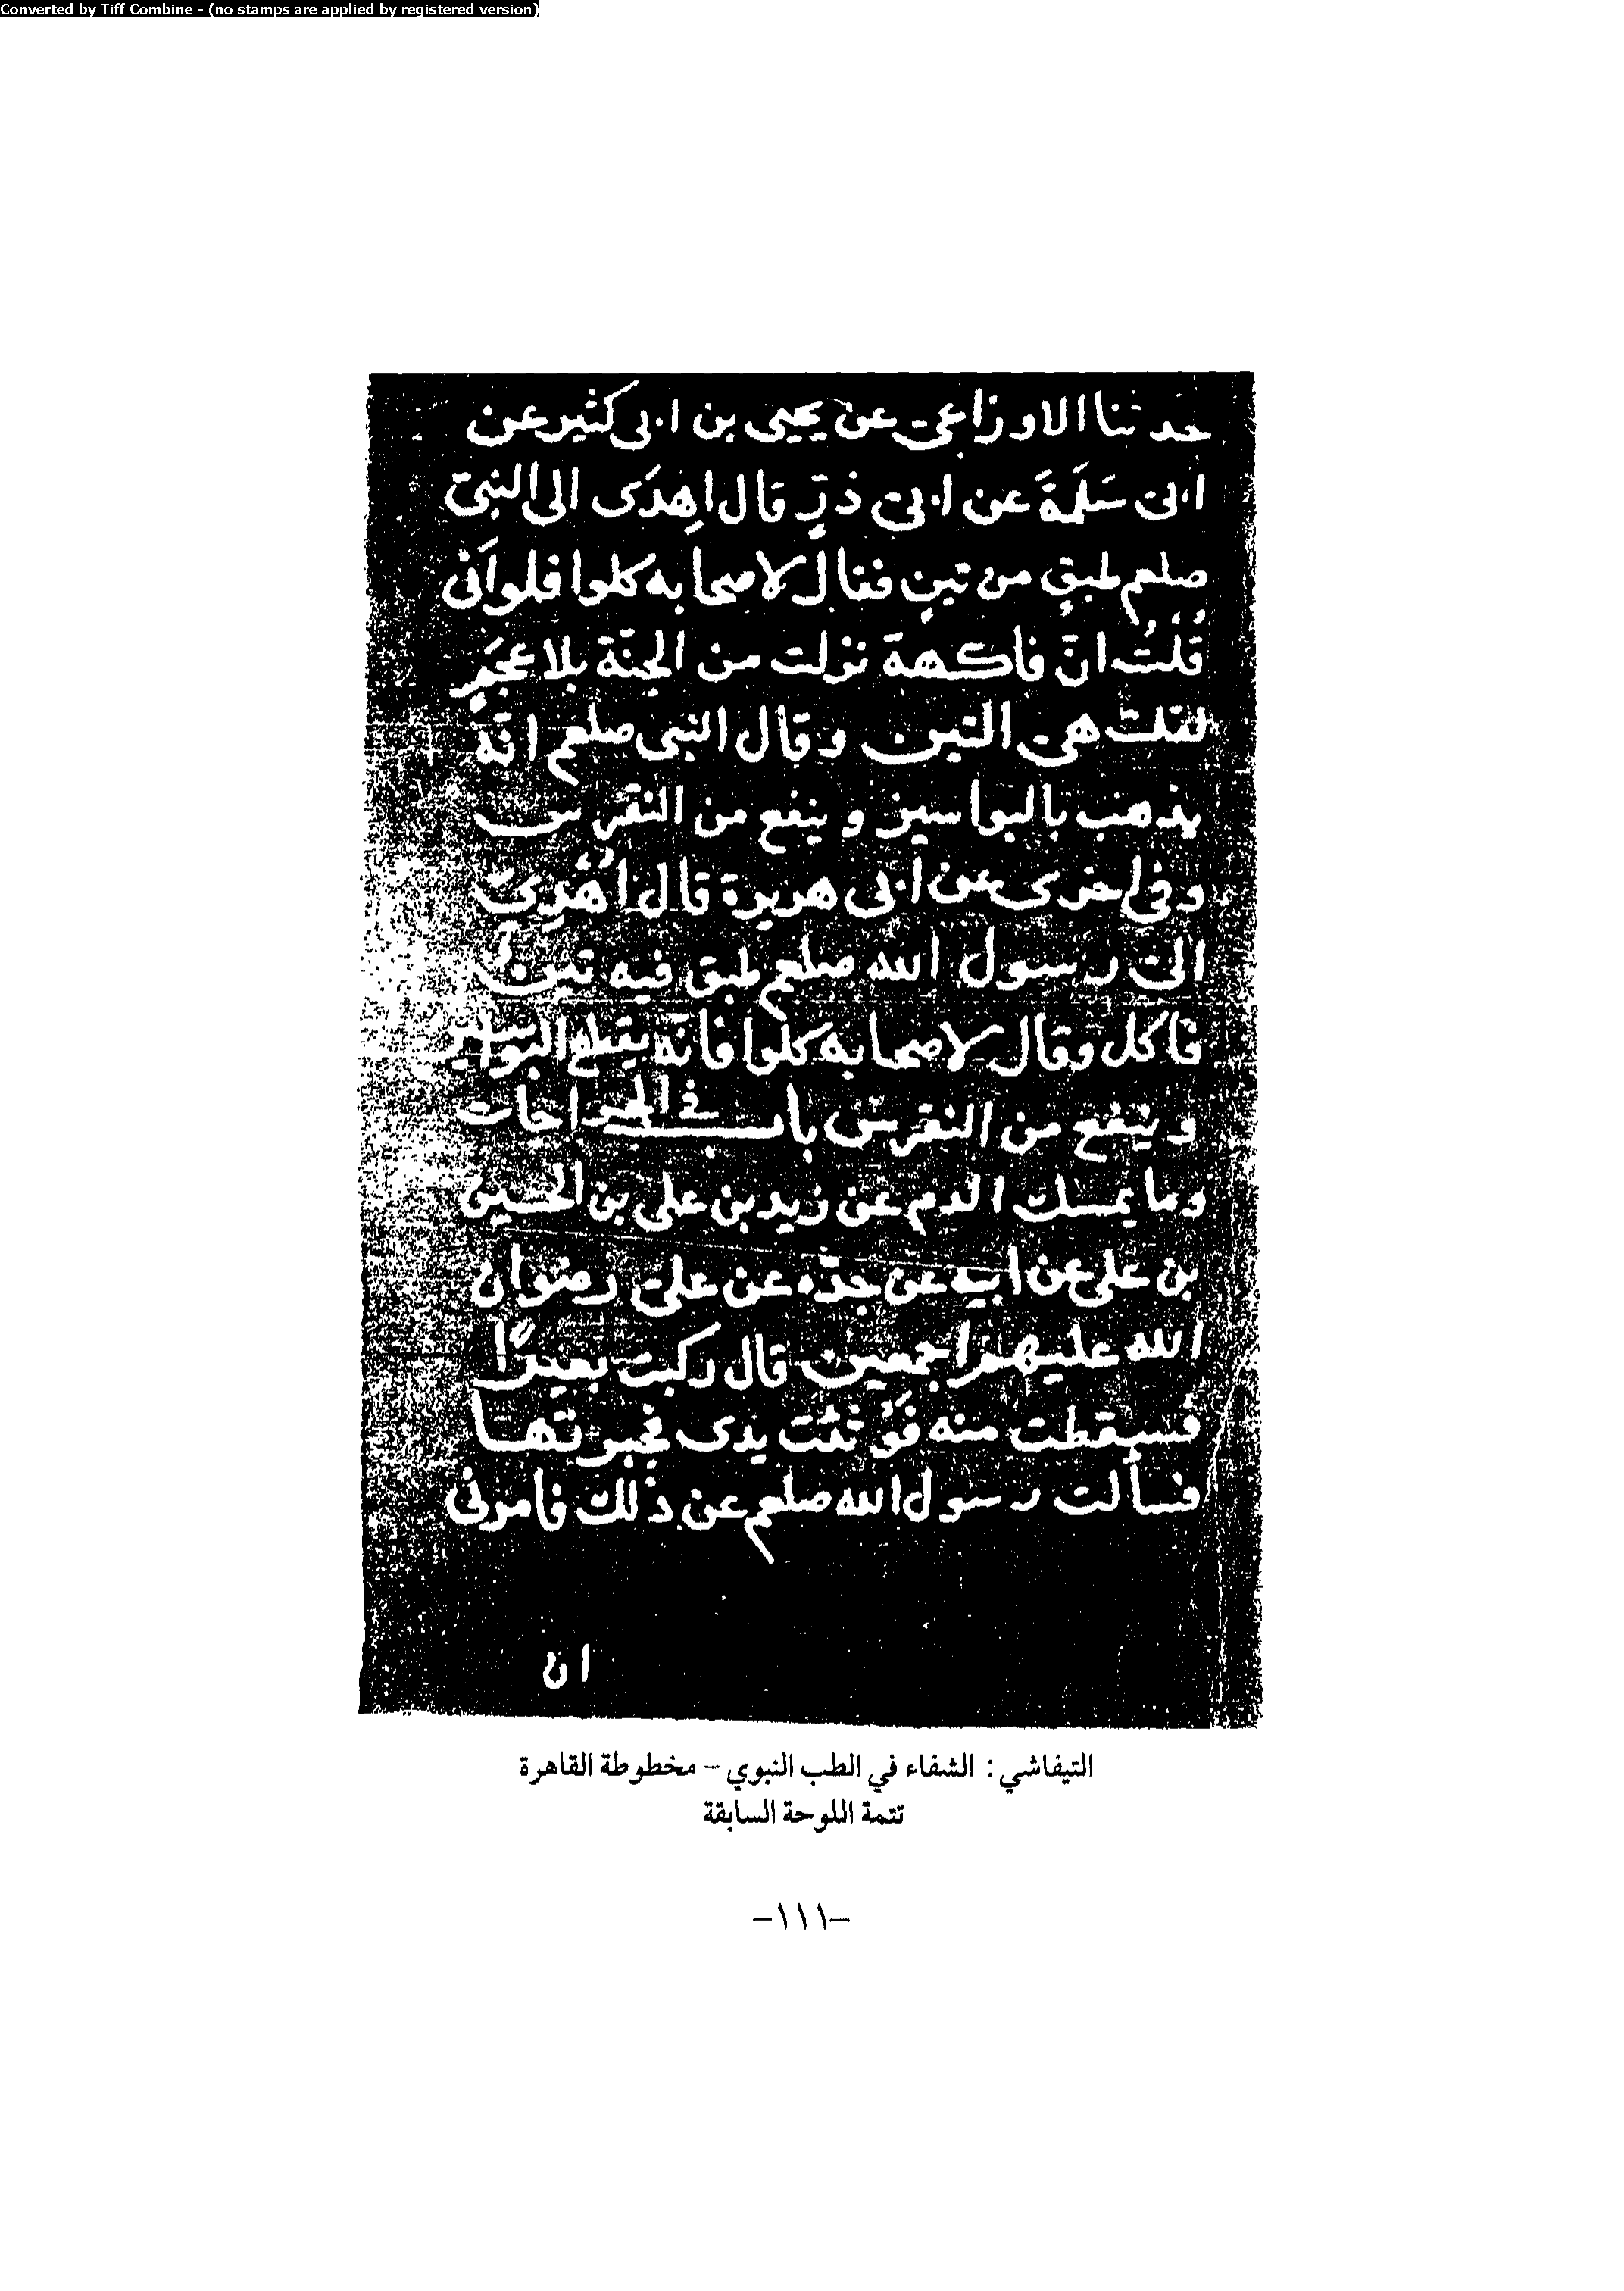 Converted by Tiff Combine - (no stamps are applied by registered version)
حدثنا الاوزاعى عن يحيى بن ابى كثير عن
ابى سَلَمَةَ عن ابى ذرٍّ قال اهدَى الى النبى
صلعم طبقٍ من تينٍ فقال لاصحابه كلوا فلو اَنى
قُلْتُ انَّ فاكهة نزلت من الجنّة بلا عجَمٍ
لقلت هى التين وقال النبى صلعم انّه
يذهب بالبواسير وينفع من النقرس
وفى اخرى عن ابى هريرة قال اُهْدِىَ
الى رسول الله صلعم طبق فيه تين
فاكل وقال لاصحابه كلوا فانّه يقطع البواسير
وينفع من النقرس باب فى الجراحات
وما يمسك الدم عن زيد بن على بن الحسين
بن على عن ابيه عن جدّه عن على رضوان
الله عليهم اجمعين قال ركبت بعيرًا
فسقطت منه فَوُثئت يدى فجبرتها
فسألت رسول الله صلعم عن ذلك فامرنى
ان
التيفاشي: الشفاء في الطب النبوي – مخطوطة القاهرة
تتمة اللوحة السابقة
–١١١–